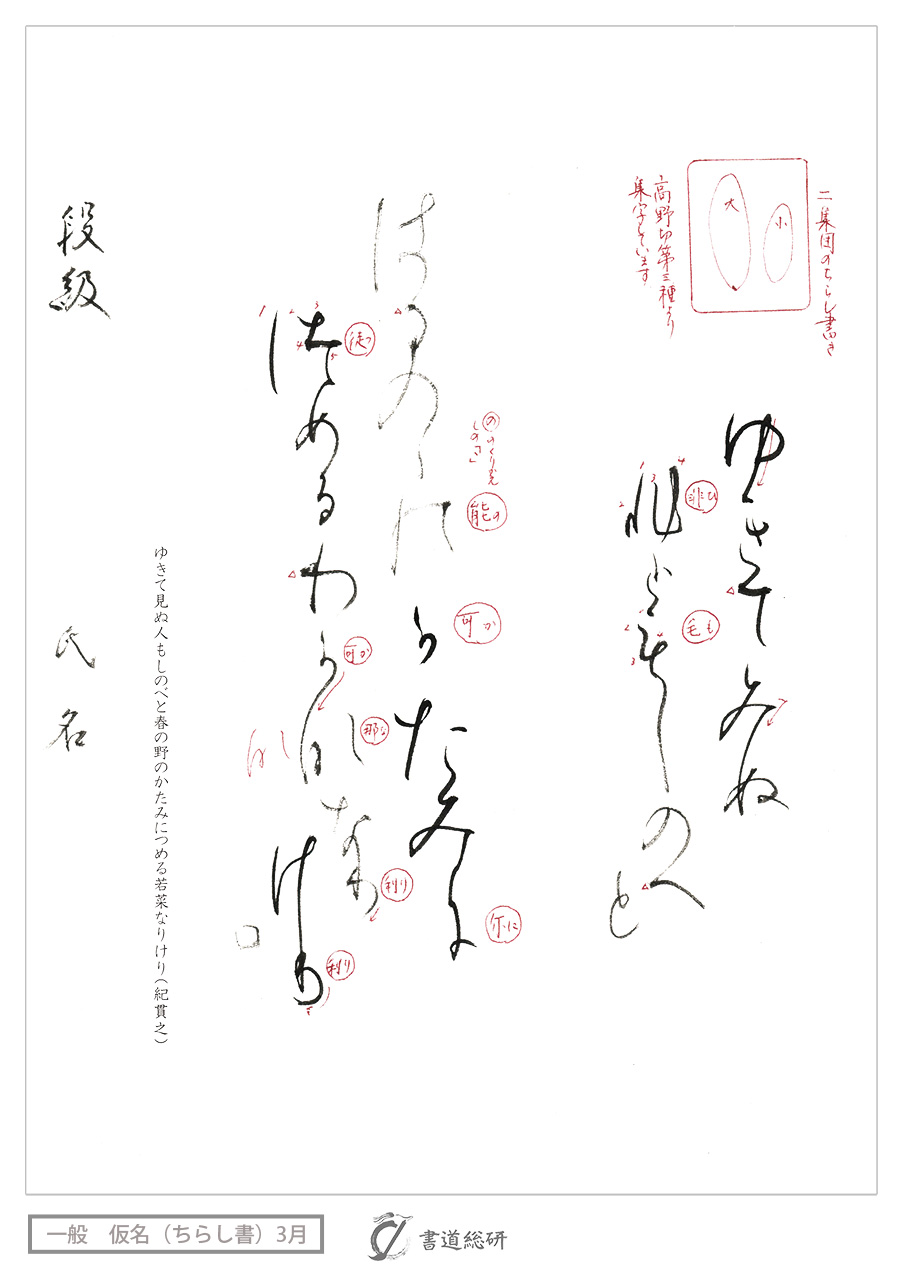 二集団のちらし書き
小
大
高野切第三種より
集字しています
ゆきてみぬ
非ひ
ひともし
毛も
のへ
と
はるのゝ
の
能の
の
可か
かたみに
尓に
徒つ
つめるわ
可か
かな
那な
なり
利り
けり
利り
ゆきて見ぬ人もしのべと春の野のかたみにつめる若菜なりけり(紀貫之)
段級
氏名
一般 仮名(ちらし書)3月
書道総研